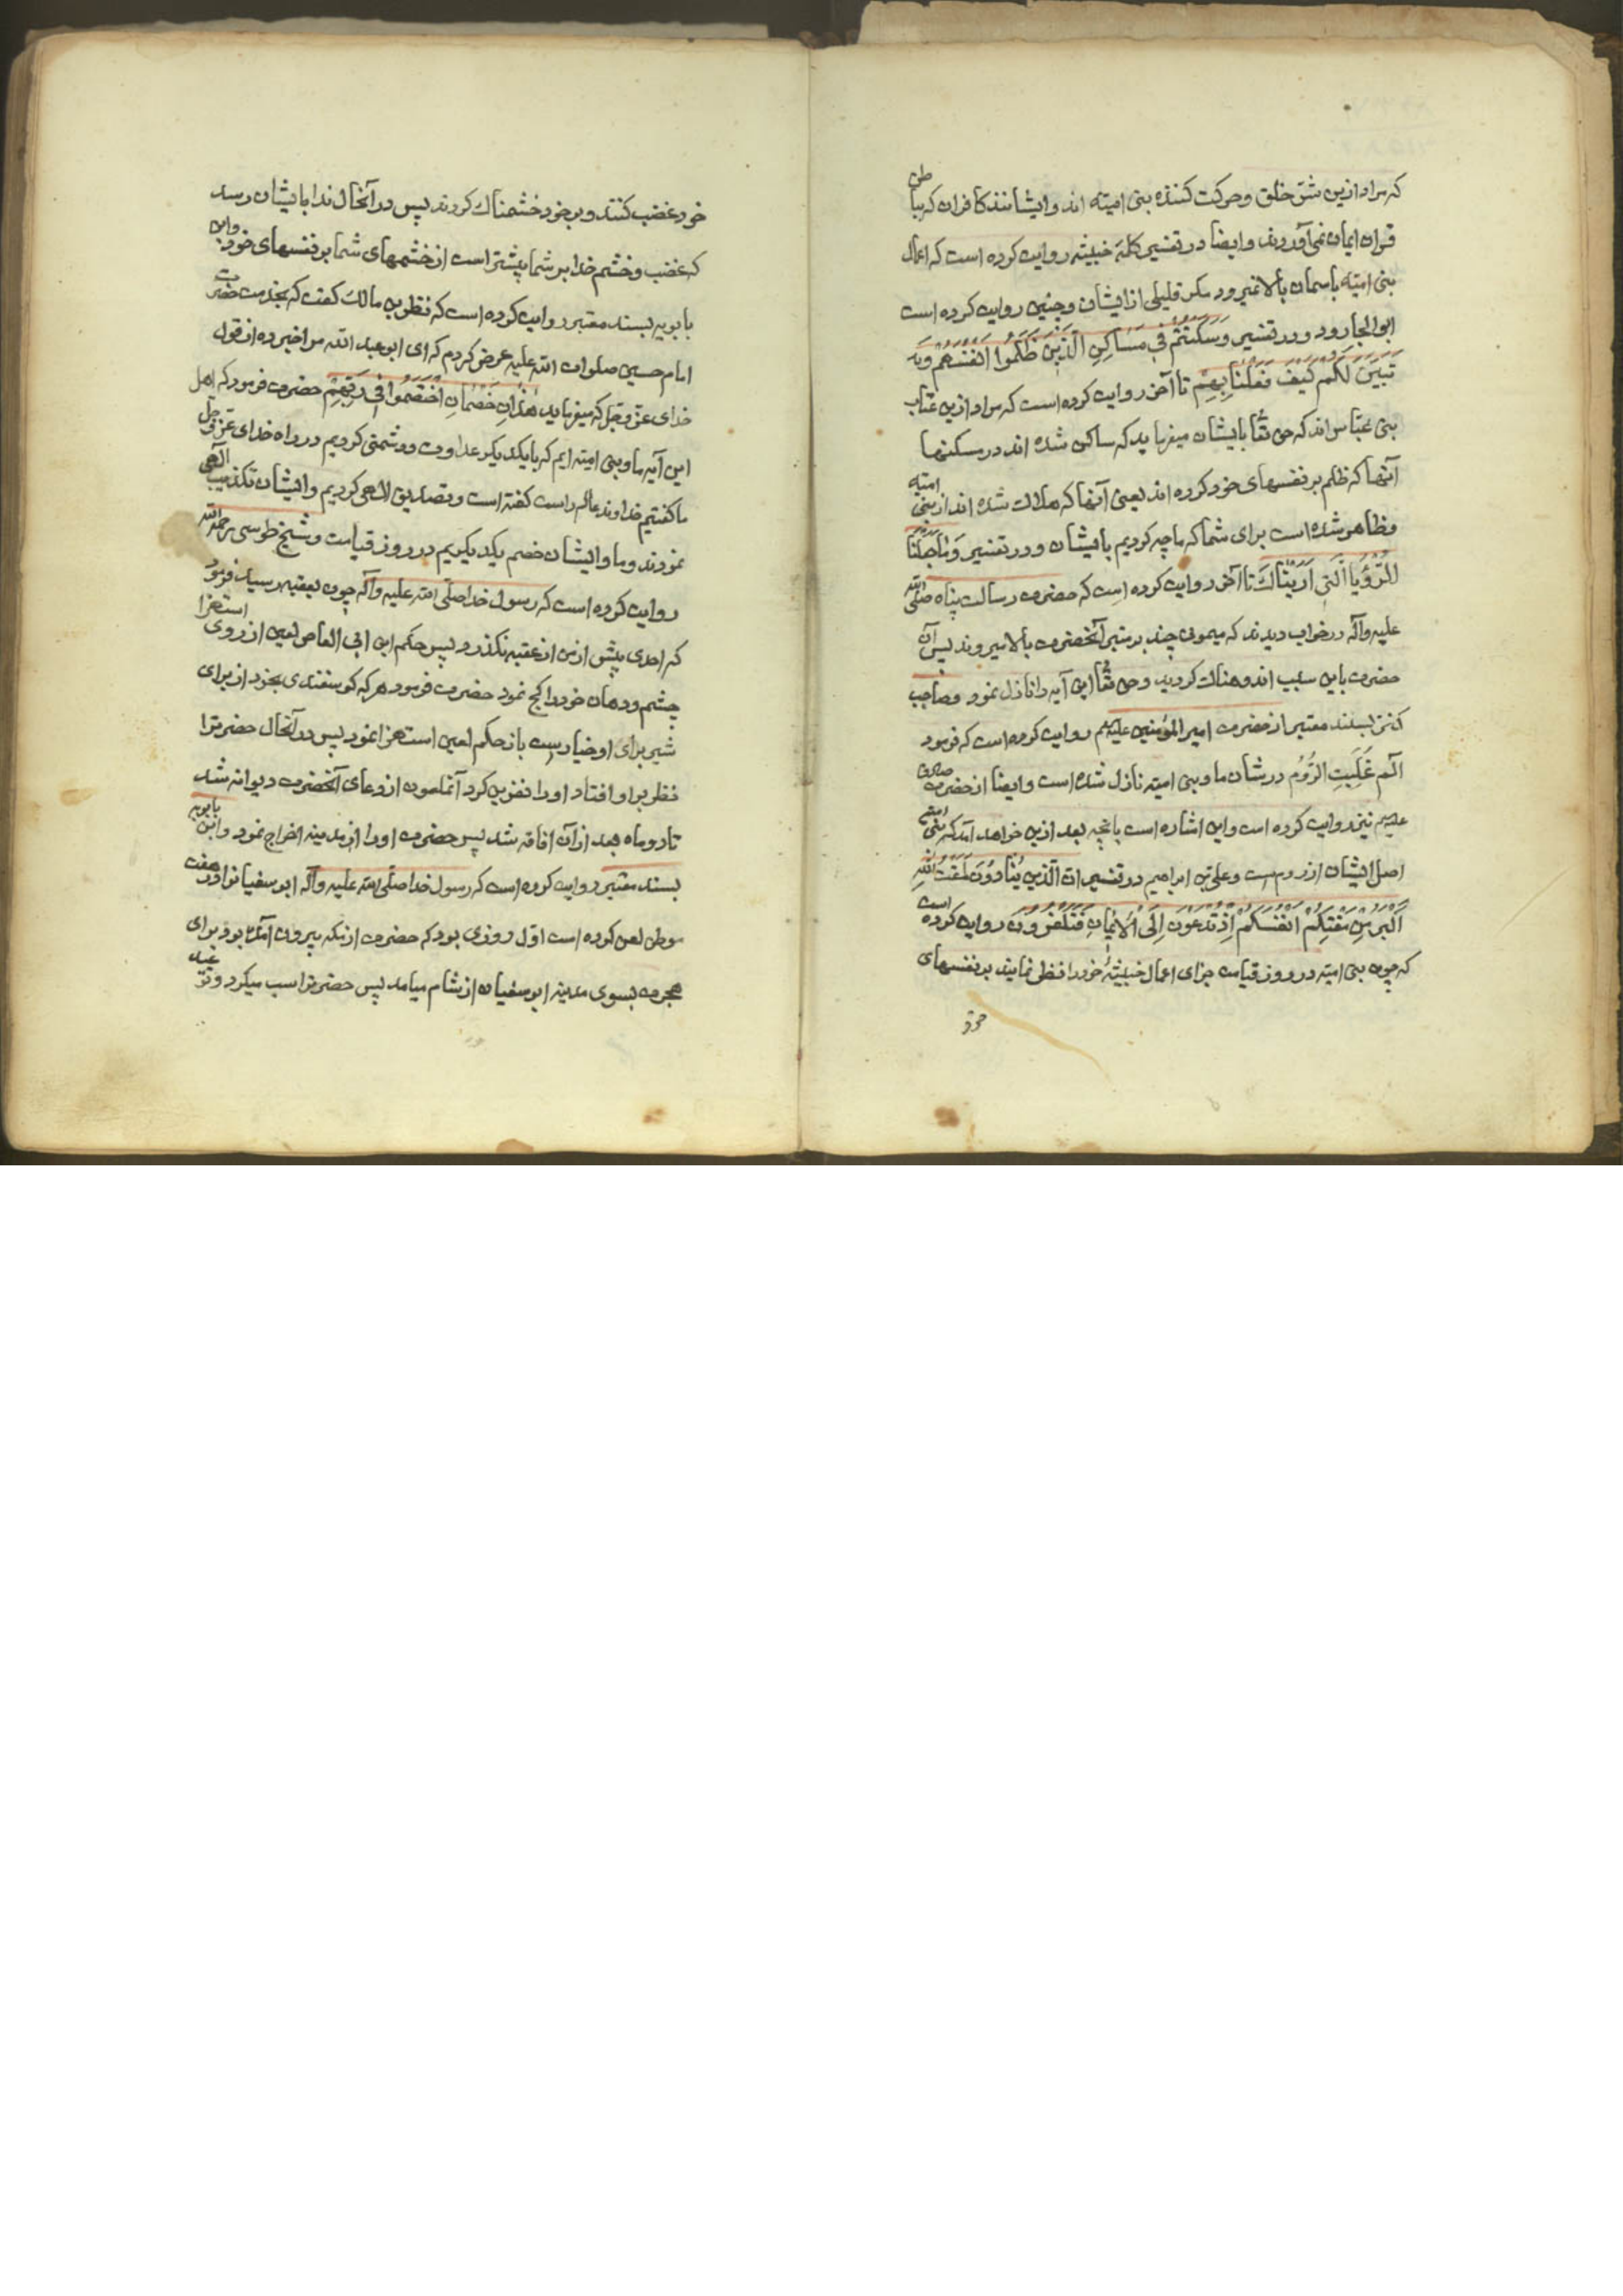 که مراد ازین شق خلق و حرکت کننده بنی امیته اند و ایشانند کافران که بباطن
قران ایمان نمی‌آورند و ایضا در تفسیر کلمهٔ خبیثه روایت کرده است که اعمال
بنی امیته باسمان بالا نمیرود مکر قلیلی از ایشان و چنین روایت کرده است
ابوالجارود و در تفسیر وَسَکَنْتُمْ فِی مَسَاکِنِ الَّذِینَ ظَلَمُوا اَنْفُسَهُمْ وَ
تَبَیَّنَ لَکُمْ کَیْفَ فَعَلْنَا بِهِمْ تا آخر روایت کرده است که مراد ازین عتاب
بنی عبّاس اند که حق تعّا بایشان میفرماید که ساکن شده اند در مسکنها
آنها که ظلم بر نفسهای خود کرده اند یعنی آنها که هلاک شده اند از بنی امیته
و ظاهر شده است برای شما که ما چه کردیم بایشان و در تفسیر وَمَا جَعَلْنَا
الرُّؤْیَا الَّتِی اَرَیْنَاکَ تا آخر روایت کرده است که حضرت رسالت پناه صلی الله
علیه وآله در خواب دیدند که میمونی چند بر منبر آنحضرت بالا میروند پس آن
حضرت باین سبب اندوهناک کردید و حق تعّا این آیه را نازل نمود و صاحب
کنز بسند معتبر از حضرت امیر المؤمنین علیه‌م روایت کرده است که فرمود
الٓم غُلِبَتِ الرُّومُ در شان ما و بنی امیته نازل شده است و ایضا از حضرت صادق
علیه‌م نیز روایت کرده است و این اشاره است بانچه بعد ازین خواهد آمد که بنی امیته
اصل ایشان از روم است و علی بن ابراهیم در تفسیر ان الَّذِینَ یُنَادَوْنَ لَمَقْتُ اللّٰهِ
اَکْبَرُ مِنْ مَقْتِکُمْ اَنْفُسَکُمْ اِذْ تُدْعَوْنَ اِلَی الْاِیْمَانِ فَتَکْفُرُونَ روایت کرده است
که چون بنی امیته در روز قیامت جزای اعمال خبیثهٔ خود را نظر نمایند بر نفسهای
خود غضب کنند و بر خود خشمناک کردند پس در آنحال ندا بایشان رسد
که غضب و خشم خدا بر شما بیشتر است از خشمهای شما بر نفسهای خود و ابن
بابویه بسند معتبر روایت کرده است که نظر بن مالک کفت که بخدمت حضرت
امام حسین صلوات الله علیه عرض کردم که ای ابو عبد الله مرا خبر ده از قول
خدای عزّ و جل که میفرماید هٰذَانِ خَصْمَانِ اخْتَصَمُوا فِی رَبِّهِمْ حضرت فرمود که اهل
این آیه ما و بنی امیته ایم که بایکدیکر عداوت و دشمنی کردیم در راه خدای عزّ و جل
ما کفتیم خداوند عالم راست کفته است و تصدیق الهی کردیم و ایشان تکذیب الهی
نمودند و ما و ایشان خصم یکدیکریم در روز قیامت و شیخ طوسی رحمه الله
روایت کرده است که رسول خدا صلّی الله علیه وآله چون بعقبه رسید فرمود
که احدی پیش از من از عقبه نکذرد پس حکم ابن ابی العاص لعین از روی استهزا
چشم و دهان خود را کج نمود حضرت فرمود هر که کوسفندی بخرد از برای
شیر برای او خیار است باز حکم لعین استهزا نمود پس در آنحال حضرترا
نظر بر او افتاد او را نفرین کرد آنملعون از دعای آنحضرت دیوانه شد
تا دو ماه بعد از آن افاقه شد پس حضرت او را از مدینه اخراج نمود و ابن بابویه
بسند معتبر روایت کرده است که رسول خدا صلّی الله علیه وآله ابو سفیانرا در هفت
موطن لعن کرده است اوّل روزی بود که حضرت از مکه بیرون آمده بود برای
هجرت بسوی مدینه ابو سفیان از شام میامد پس حضرترا سب میکرد و